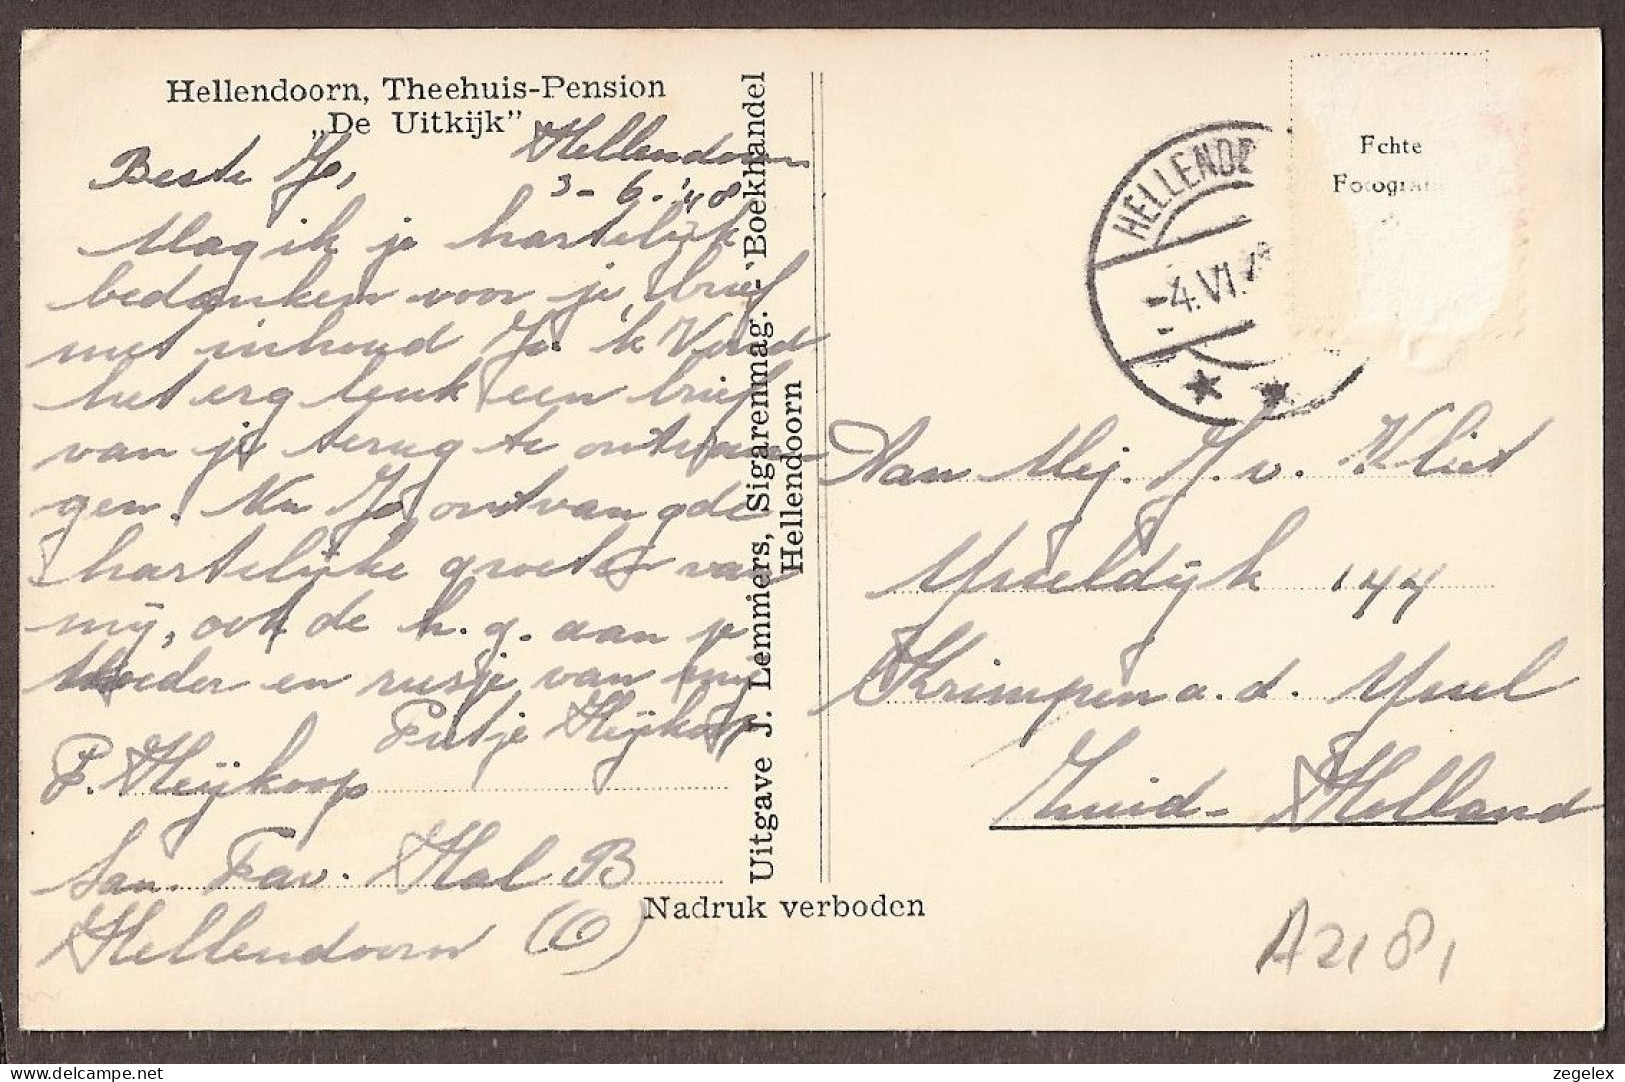 Hellendoorn, Theehuis-Pension
„De Uitkijk”
Beste Jo, Hellendoorn
3-6-'48
Mag ik je hartelijk
bedanken voor je brief
met inhoud Jo. 'k Vind
het erg leuk een brief
van je terug te ontvan-
gen. Nu Jo, ontvang de
hartelijke groeten van
mij, ook de h.g. aan je
Moeder en zusje van mij
Fietje Heijkoop
F. Heijkoop
San. Fav. Hal B
Hellendoorn (O)
Uitgave J. Lemmers, Sigarenmag.-Boekhandel
Hellendoorn
Nadruk verboden
HELLENDO
-4.VI.48
Echte
Fotogra
Aan Mej. J. v. Vliet
IJseldijk 144
Krimpen a.d. IJsel
Zuid-Holland
A2181
delcampe.net
zegelex